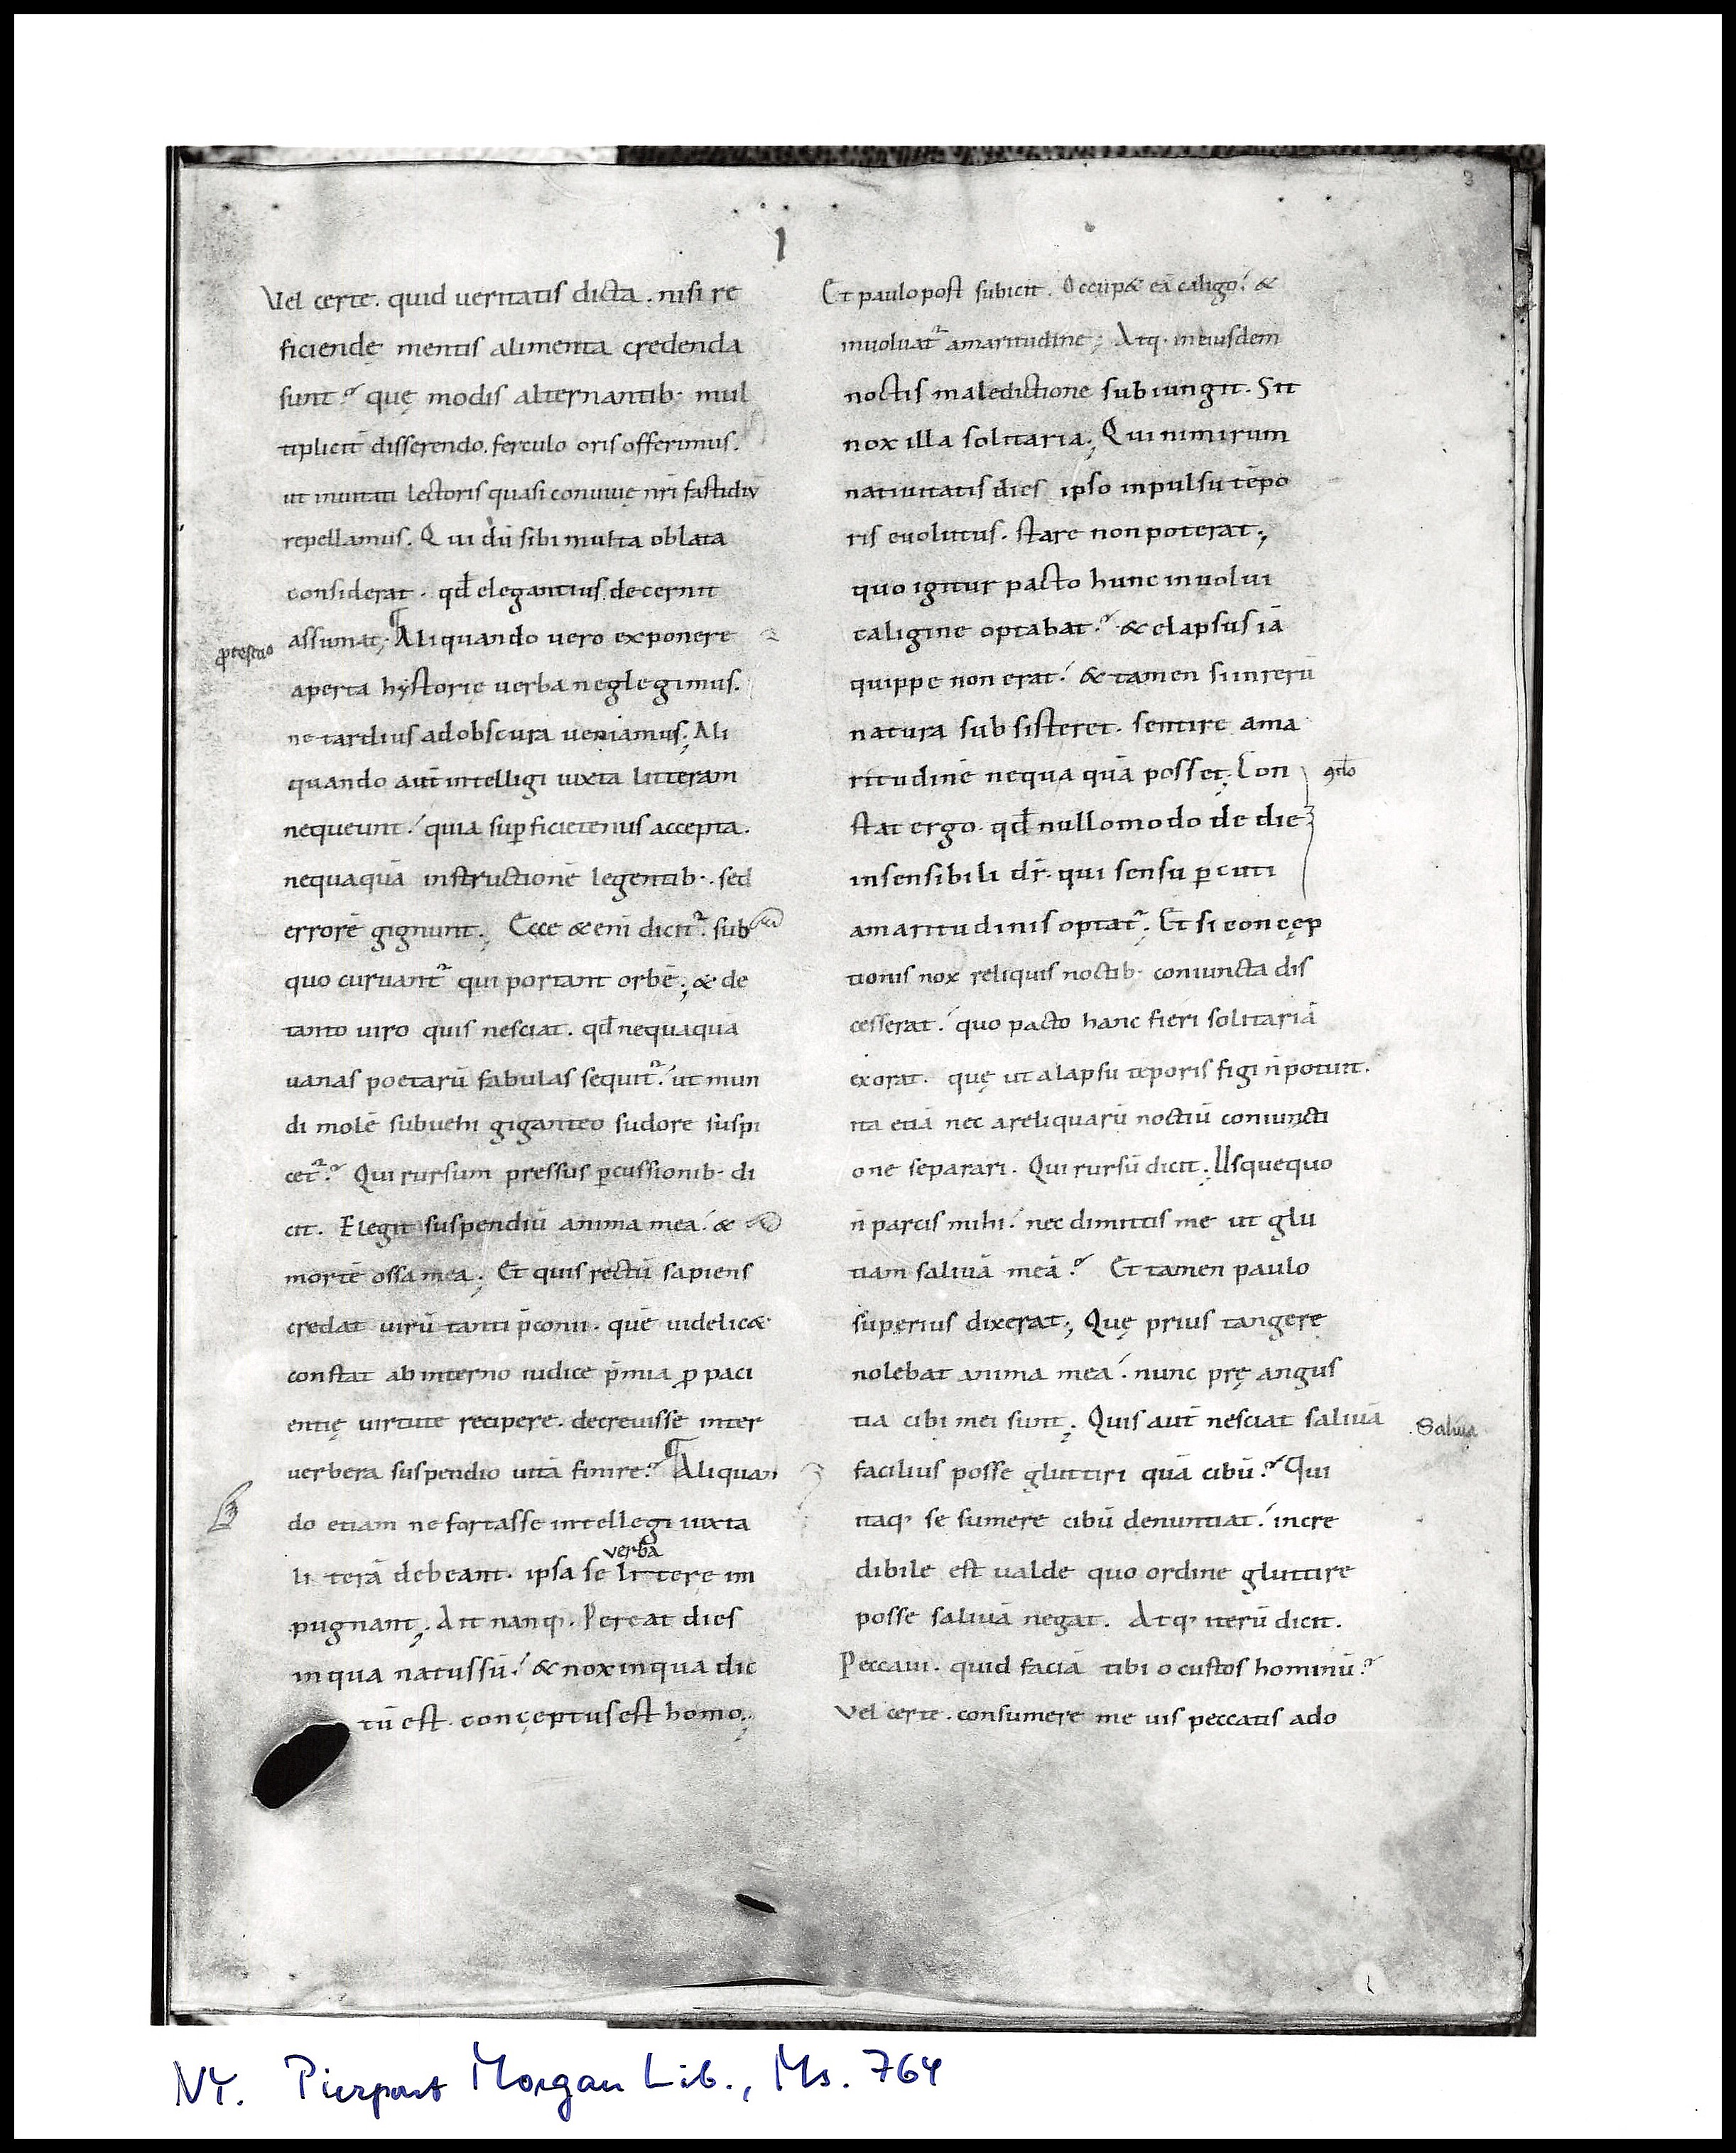 3
Vel certe. quid veritatis dicta. nisi re
ficiendę mentis alimenta credenda
sunt? quę modis alternantib· mul
tiplicit̄ disserendo. ferculo oris offerimus.
ut invitati lectoris quasi convivę nr̄i fastidiū
repellamus. Qui dū sibi multa oblata
considerat. qđ elegantius decernit
assumat; Aliquando vero exponere
ꝓtestatio
aperta hystorię verba neglegimus.
ne tardius ad obscura veniamus; Ali
quando aut̄ intelligi iuxta litteram
nequeunt. quia suꝑficietenus accepta.
nequaquā instructionē legentib·. sed
errorē gignunt; Ecce &enī dicit᷑. sub
quo curvant᷑ qui portant orbē; & de
tanto viro quis nesciat. qđ nequaquā
vanas poetarū fabulas sequit᷑. ut mun
di molē subvehi giganteo sudore suspi
cet᷑? Qui rursum pressus ꝑcussionib· di
cit. Elegit suspendiū anima mea. &
mortē ossa mea; Et quis rectū sapiens
credat virū tanti p̄conii. quē videlic&
constat ab interno iudice p̄mia ꝓ paci
entię virtute recipere. decrevisse inter
verbera suspendio vitā finire? Aliquan
do etiam ne fortasse intellegi iuxta
verba
li terā debeant. ipsa se littere im
pugnant; Ait nanq·. Pereat dies
in qua natus sū. & nox in qua dic
tū est. conceptus est homo;
Et paulo post subicit. Occup& eā caligo. &
involvat᷑ amaritudine; Atq· in eiusdem
noctis maledictione subiungit. Sit
nox illa solitaria; Qui nimirum
nativitatis dies ipso inpulsu tēpo
ris evolutus. stare non poterat;
quo igitur pacto hunc involvi
caligine optabat? & elapsus iā
quippe non erat. & tamen si in rerū
natura subsisteret. sentire ama
ritudinē nequaquā posset; Con
9clo
stat ergo. qđ nullomodo de die
insensibili dr̄. qui sensu ꝑcuti
amaritudinis optat᷑; Et si concep
tionis nox reliquis noctib· coniuncta dis
cesserat. quo pacto hanc fieri solitariā
exorat. quę ut a lapsu tēporis figi n̄ potuit.
ita etiā nec a reliquarū noctiū coniuncti
one separari. Qui rursū dicit; Usquequo
n̄ parcis mihi. nec dimittis me ut glu
tiam salivā meā? Et tamen paulo
superius dixerat; Quę prius tangere
nolebat anima mea. nunc prę angus
tia cibi mei sunt; Quis aut̄ nesciat salivā
Saliva
facilius posse gluttiri quā cibū? Qui
itaq· se sumere cibū denuntiat. incre
dibile est valde quo ordine gluttire
posse salivā negat. Atq· iterū dicit.
Peccavi. quid faciā tibi o custos hominū?
Vel certe. consumere me vis peccatis ado
NY. Pierpont Morgan Lib., Ms. 764